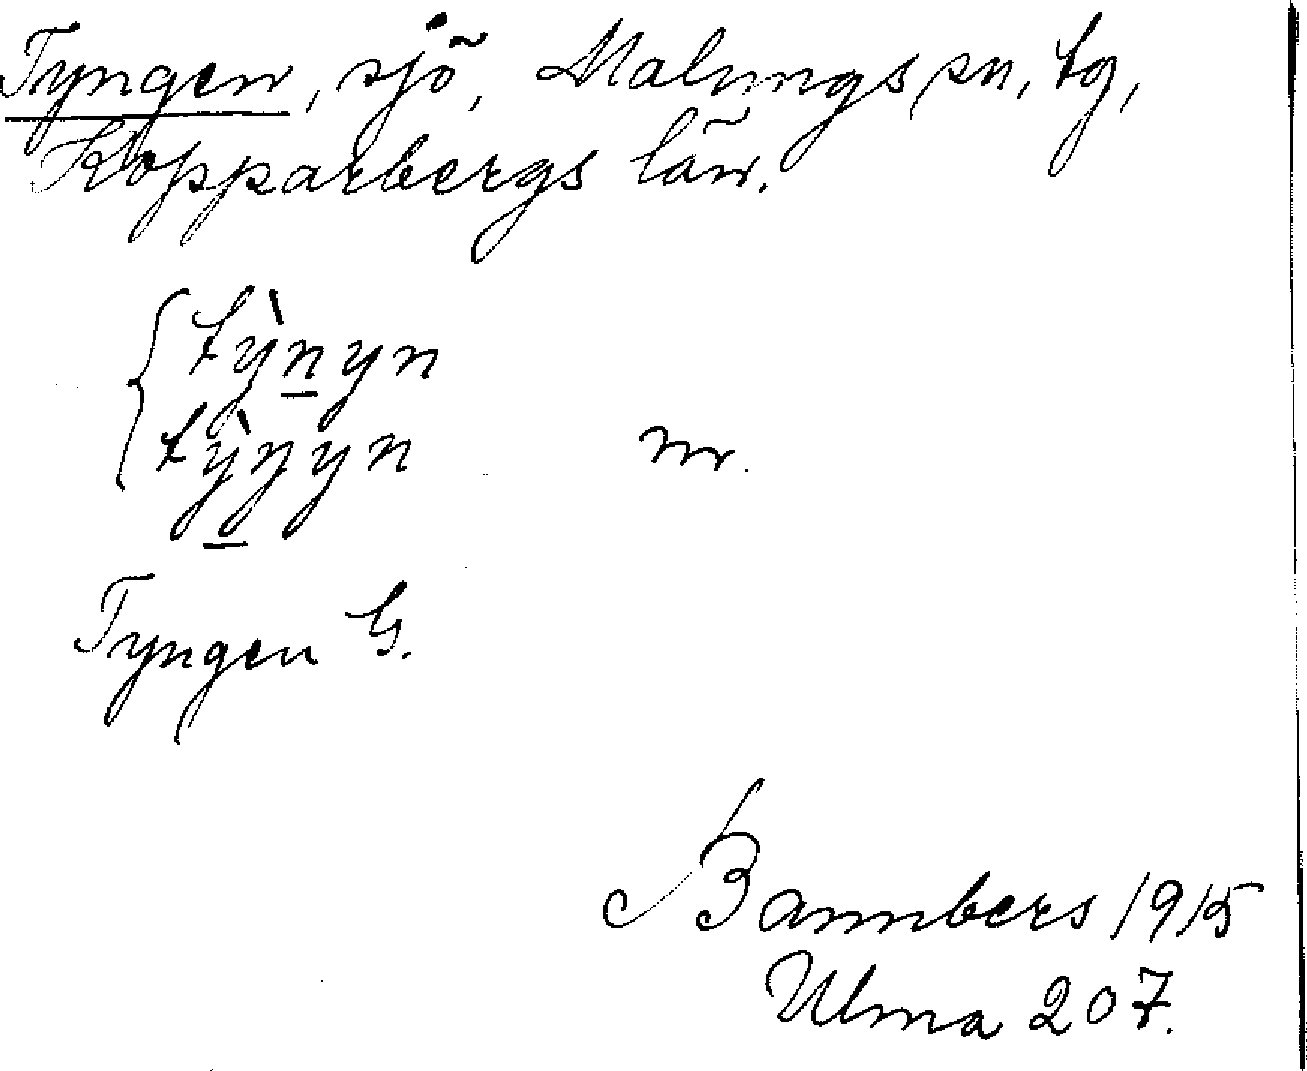 Tyngen, sjö, Malungs sn, tg,
Kopparbergs län.
tỳn̲yn
tỳŋ̲yn nr.
Tyngen G.
Bannbers 1915
Ulma 207.